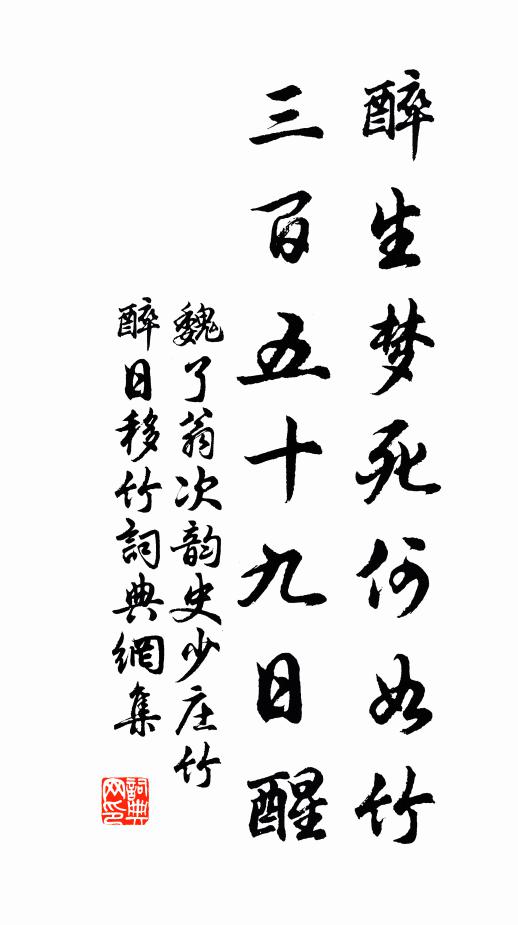 醉生梦死何如竹
三百五十九日醒
魏了翁次韵史少庄竹
醉日移竹詞典網集
詞典
网印